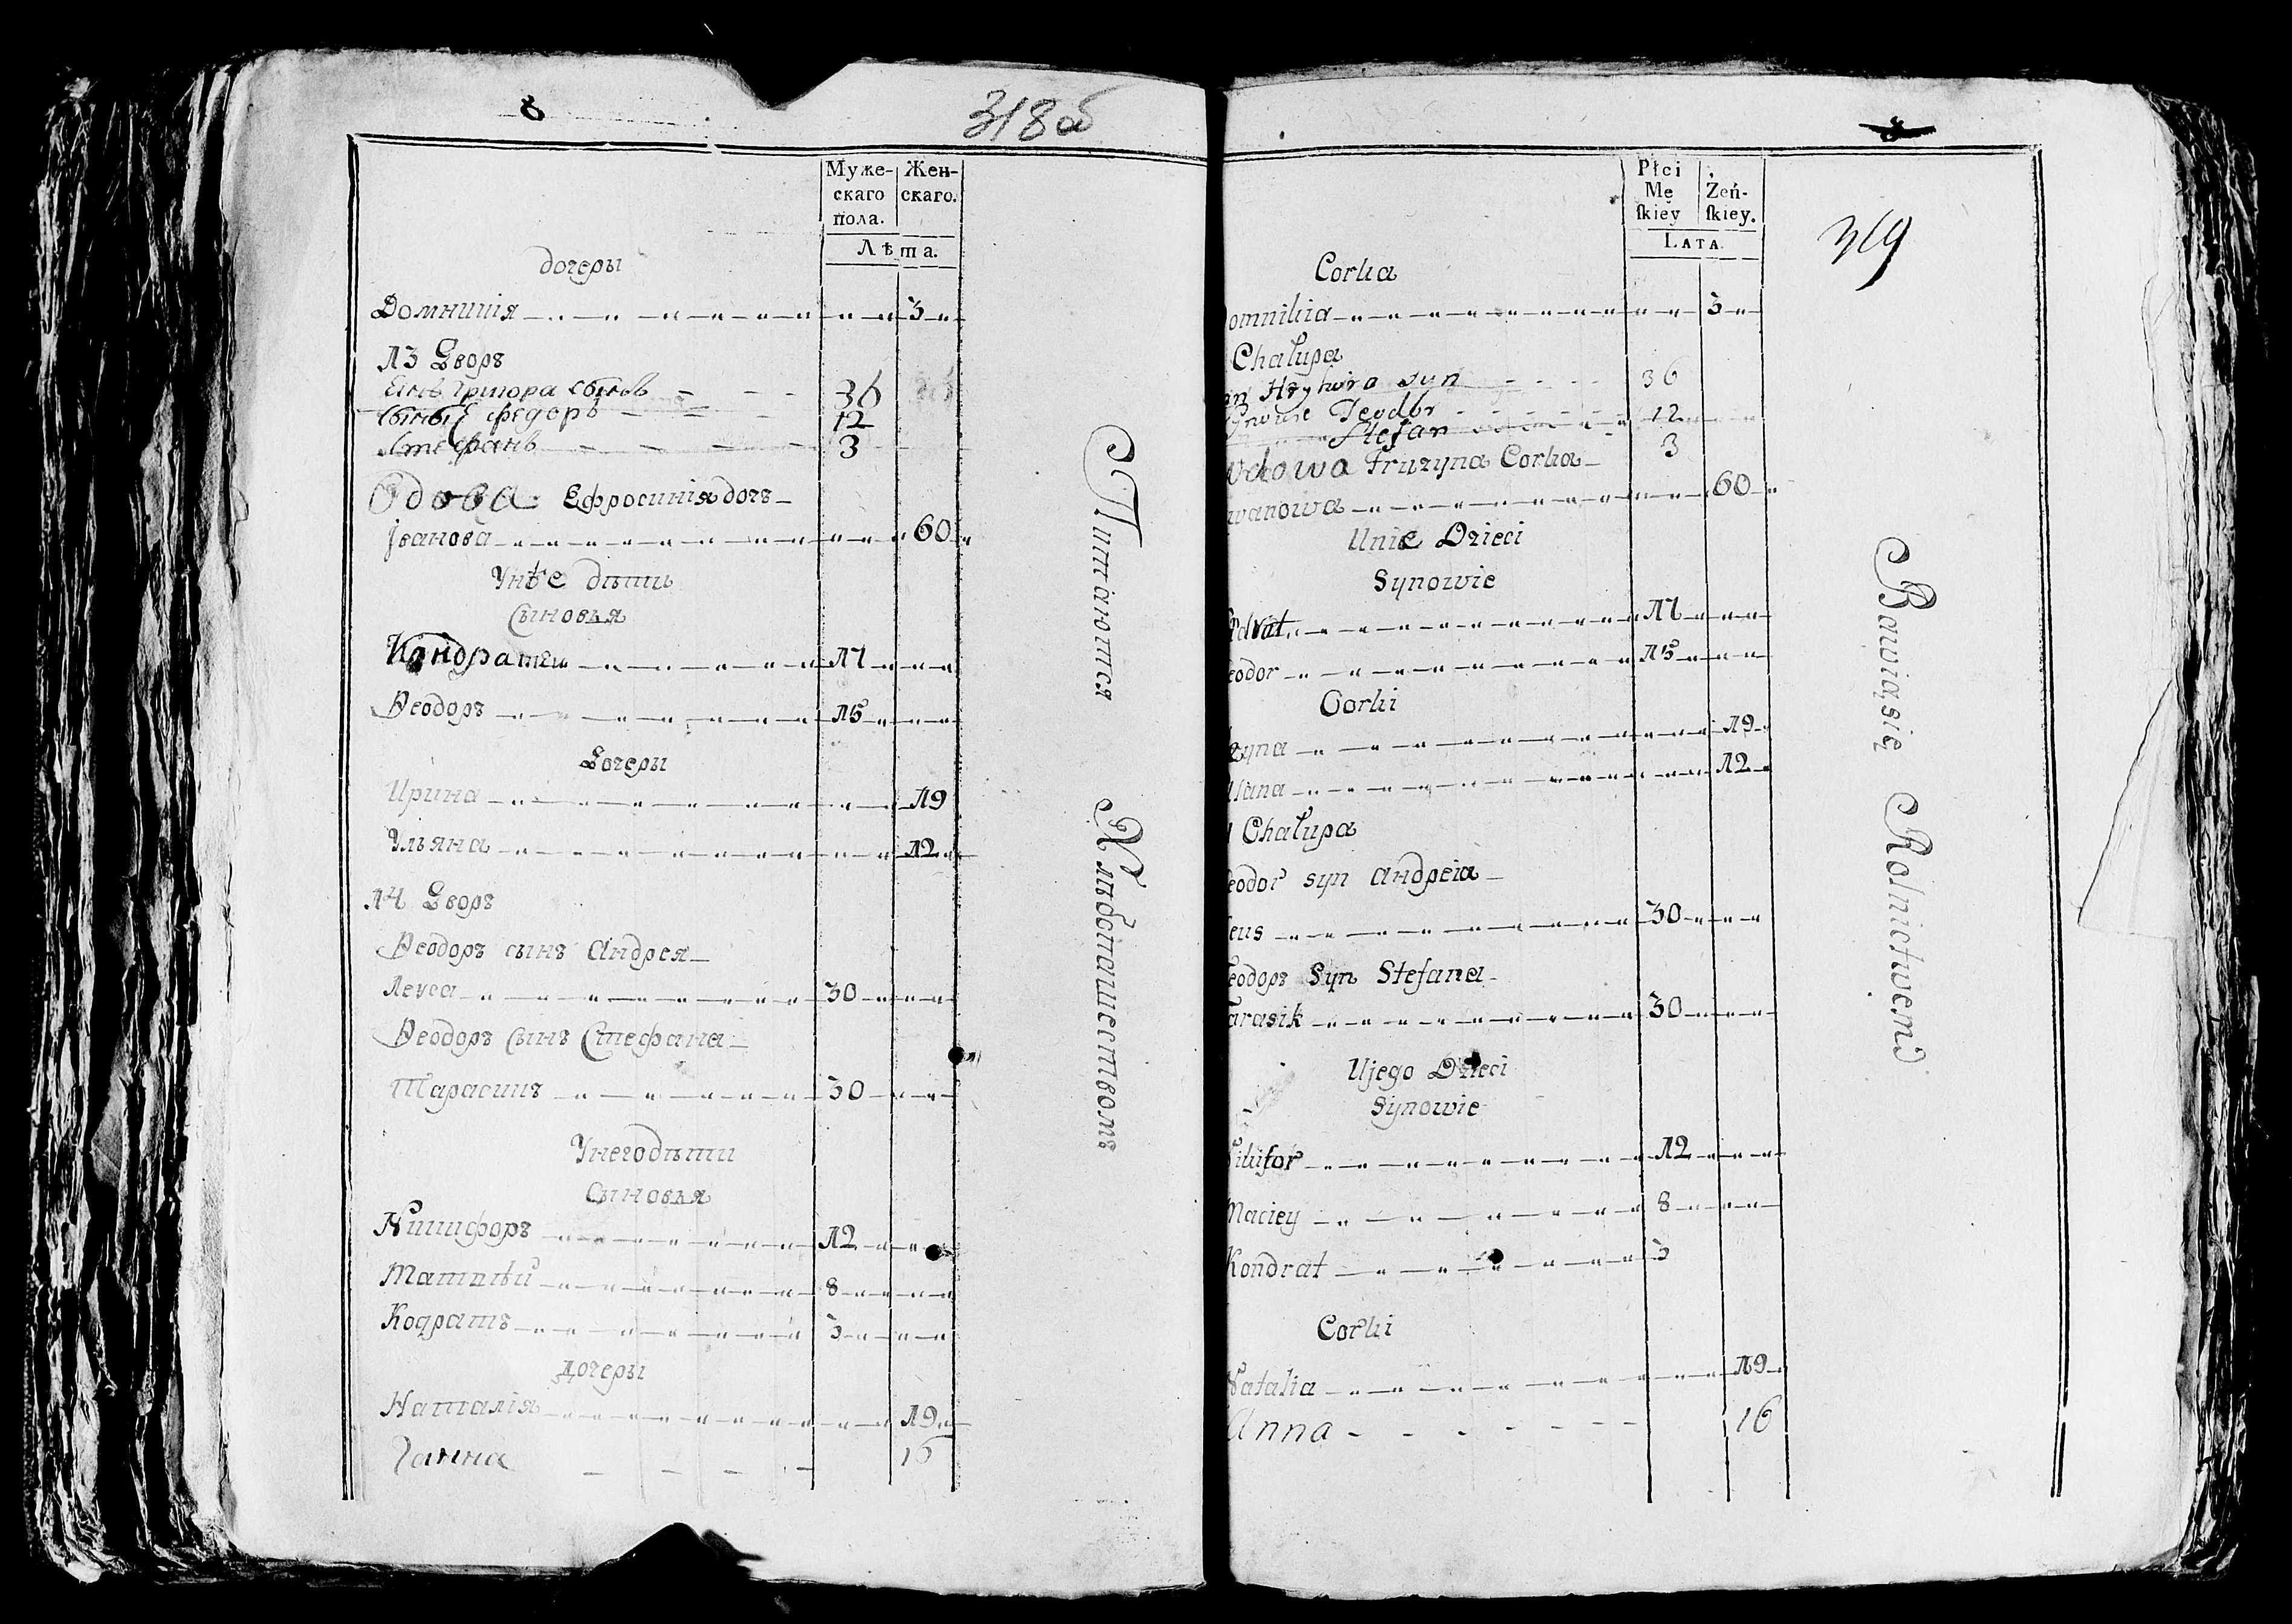 8
318 об
Муже-
скаго
пола.
Жен-
скаго.
Лѣта.
дочеры
Домникія 3
13 Дворъ
Янъ Григора сынъ 36
Сыны Федоръ 12
Стефанъ 3
Одова Ефросинія дочъ
Іванова 60
Унѣе дѣти
Сыновья
Кондратъ 17
Ѳеодоръ 15
Дочеры
Ирина 19
Ульяна 12
14 Дворъ
Ѳеодоръ сынъ Андрея
Леуса 30
Ѳеодоръ Сынъ Стефана
Тарасикъ 30
Унегодѣти
Сыновья
Никифоръ 12
Маттѣй 8
Кодратъ 3
дочеры
Наталія 19
Ганна 16
Питаются Хлѣбопашествомъ
8
319
Płci
Mę
ſkiey
Żeń-
ſkiey.
LATA.
Corka
omnikia 3
Chałupa
an Hryhora syn 36
ynowie Teodor 12
Stefan 3
Wdowa Fruzyna Corka
wanowa 60
Unie Dzieci
Synowie
17
eodor 15
Corki
yna 19
lana 12
Chałupa
eodor syn Андреia
eus 30
eодоръ Syn Stefana
arasik 30
Ujego Dzieci
Synowie
ikifor 12
Maciey 8
Kondrat 3
Corki
Natalia 19
Anna 16
Bawiąsię Rolnictwem